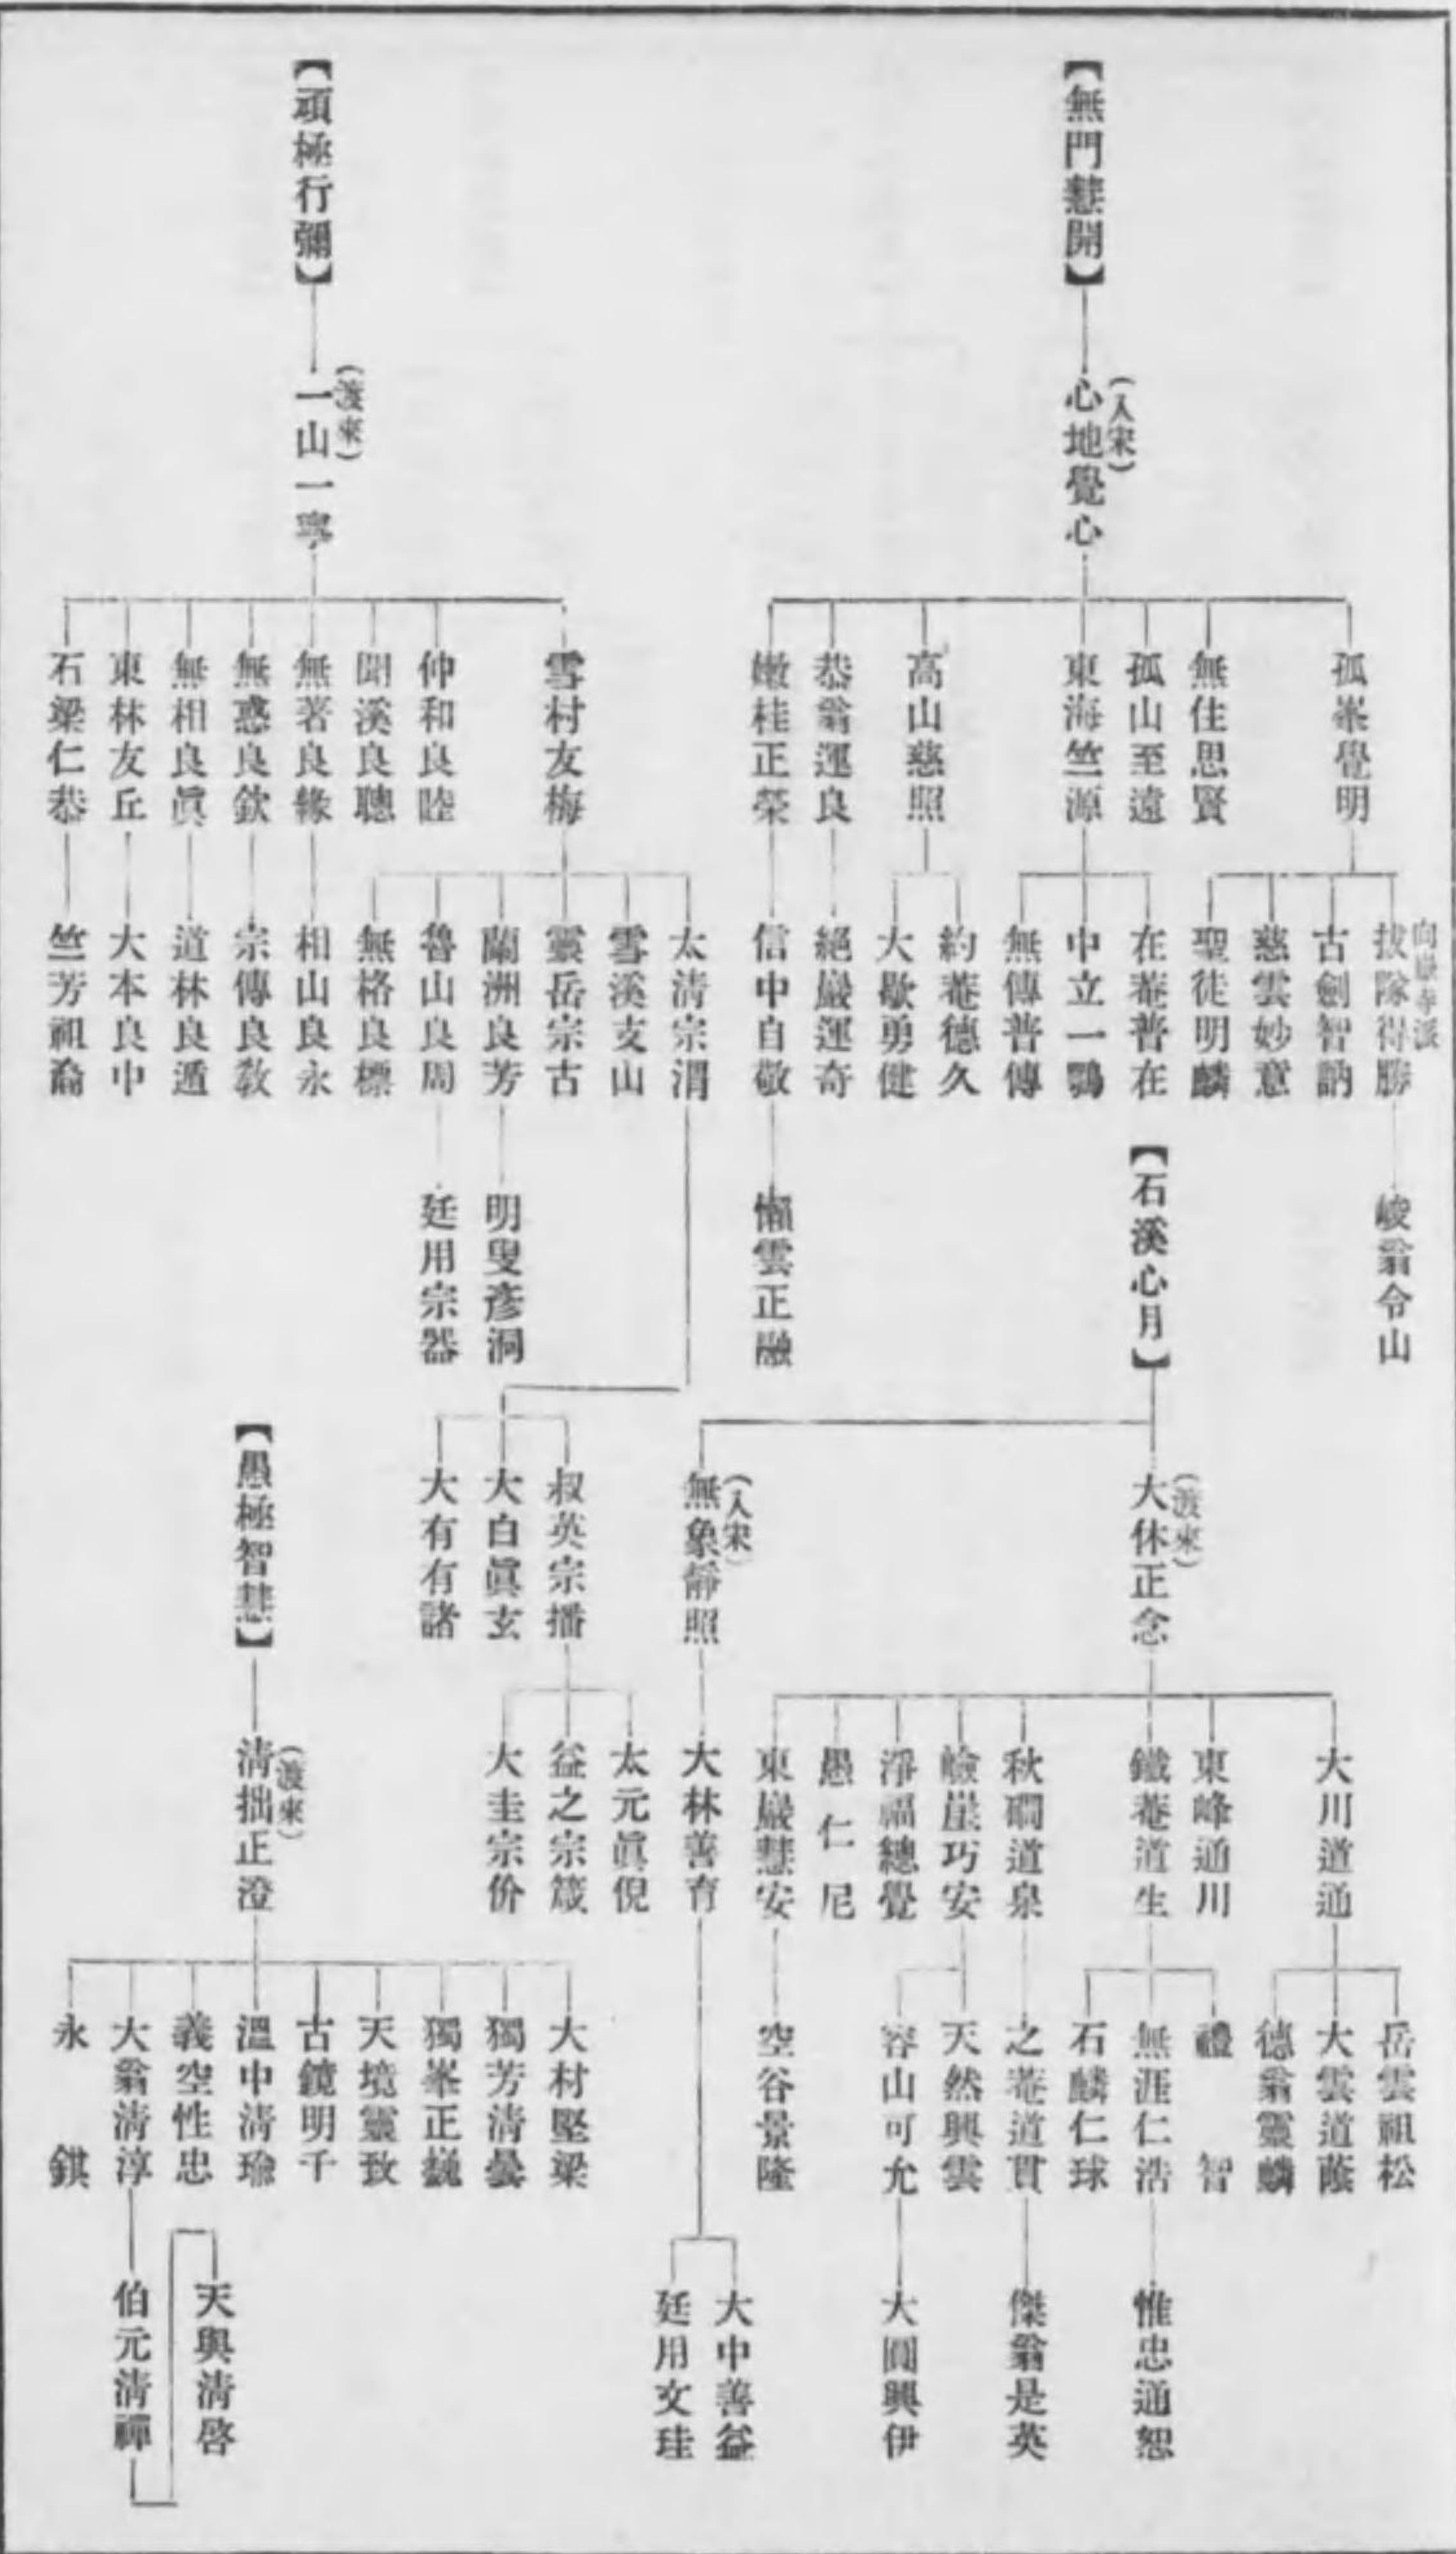 【無門慧開】
(入宋)
心地覺心
孤峯覺明
無住思賢
孤山至遠
東海竺源
高山慈照
恭翁運良
嫩桂正榮
向嶽寺派
拔隊得勝
古劍智訥
慈雲妙意
聖徒明麟
在菴普在
中立一鶚
無傳普傳
約菴德久
大歇勇健
絕巖運奇
信中自敬
峻翁令山
懶雲正融
【石溪心月】
(渡來)
大休正念
(入宋)
無象靜照
大川道通
東峰通川
鐵菴道生
秋磵道泉
嶮崖巧安
淨福總覺
愚仁尼
東巖慧安
大林善育
岳雲祖松
大雲道蔭
德翁靈麟
禮智
無涯仁浩
石麟仁球
之菴道貫
天然興雲
容山可允
空谷景隆
惟忠通恕
傑翁是英
大圓興伊
大中善益
廷用文珪
【頑極行彌】
(渡來)
一山一寧
雪村友梅
仲和良睦
聞溪良聰
無著良緣
無惑良欽
無相良眞
東林友丘
石梁仁恭
太清宗渭
雪溪支山
靈岳宗古
蘭洲良芳
魯山良周
無格良標
相山良永
宗傳良敎
道林良遁
大本良中
竺芳祖裔
明叟彥洞
廷用宗器
叔英宗播
大白眞玄
大有有諸
太元眞倪
益之宗箴
大圭宗价
【愚極智慧】
(渡來)
清拙正澄
大村堅梁
獨芳清曇
獨峯正巍
天境靈致
古鏡明千
溫中清瑜
義空性忠
大翁清淳
永錤
伯元清禪
天與清啓